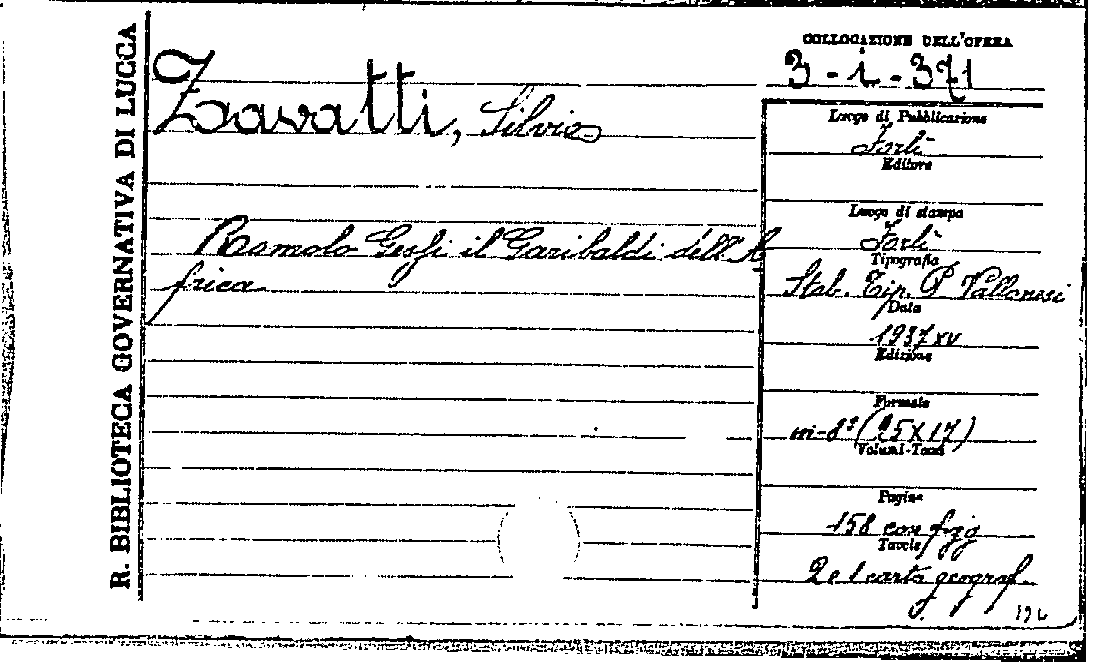 R. BIBLIOTECA GOVERNATIVA DI LUCCA
Zavatti, Silvio
Romolo Gessi il Garibaldi dell'A
frica
COLLOCAZIONE DELL'OPERA
3-i-371
Luogo di Pubblicazione
Forlì
Editore
Luogo di stampa
Forlì
Tipografia
Stab. Tip. P. Vallonesi
Data
1937 xv
Edizione
Formato
in-8° (25X17)
Volumi-Tomi
Pagine
158 con figg
Tavole
2 e 1 carta geograf.